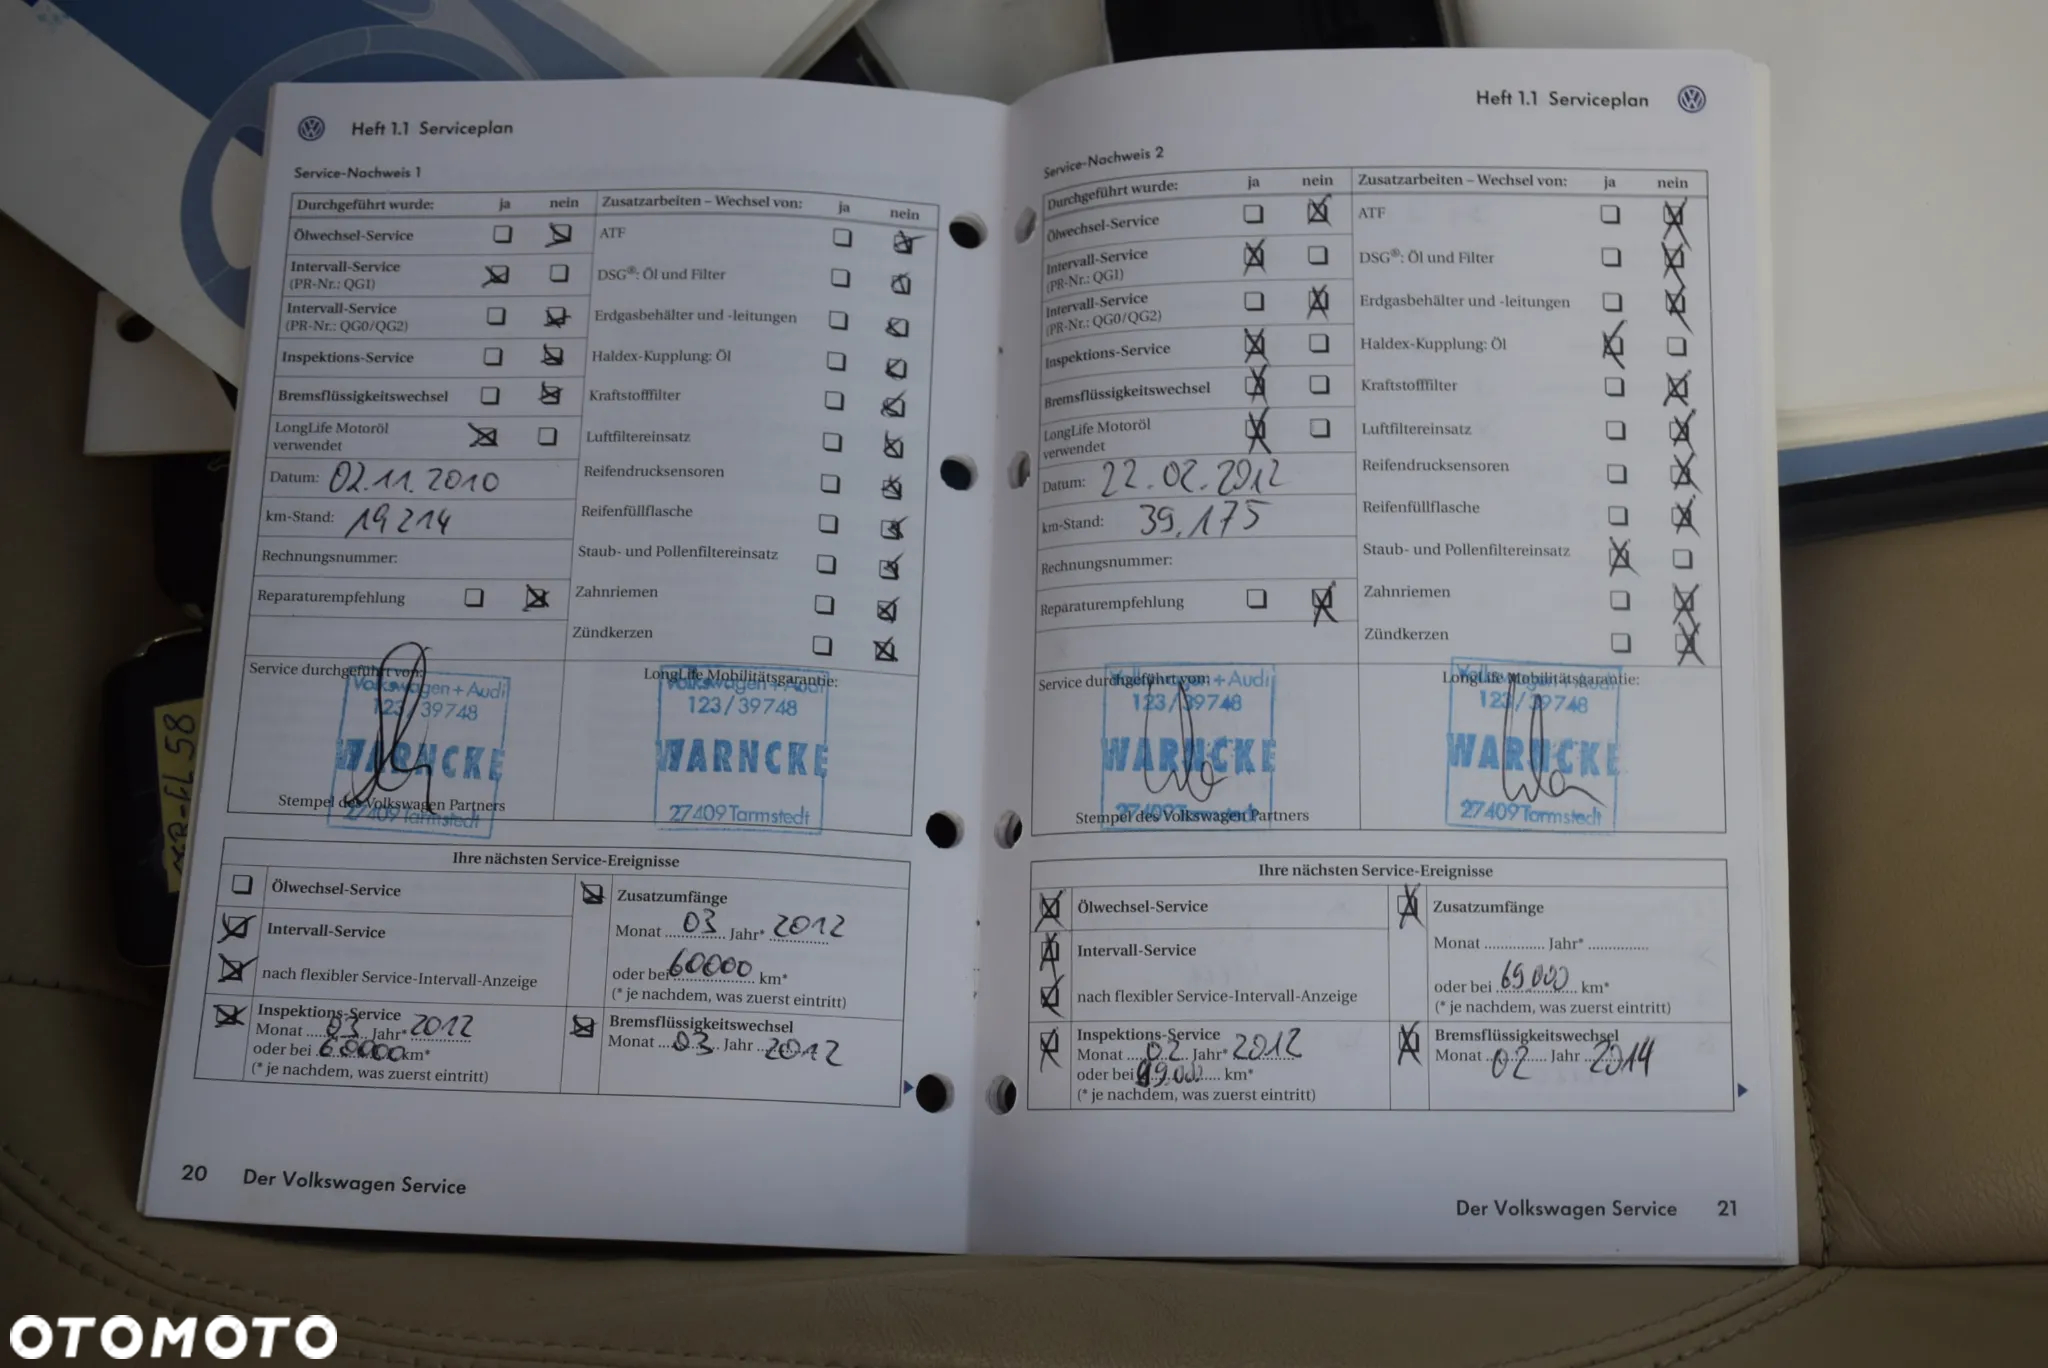 Heft 1.1 Serviceplan
Service-Nachweis 1
Durchgeführt wurde: ja nein Zusatzarbeiten – Wechsel von: ja nein
Ölwechsel-Service ATF
Intervall-Service DSG®: Öl und Filter
(PR-Nr.: QG1)
Intervall-Service Erdgasbehälter und -leitungen
(PR-Nr.: QG0/QG2)
Inspektions-Service Haldex-Kupplung: Öl
Bremsflüssigkeitswechsel Kraftstofffilter
LongLife Motoröl Luftfiltereinsatz
verwendet
Datum: 02.11.2010 Reifendrucksensoren
km-Stand: 19214 Reifenfüllflasche
Rechnungsnummer: Staub- und Pollenfiltereinsatz
Reparaturempfehlung Zahnriemen
Zündkerzen
Service durchgeführt von: LongLife Mobilitätsgarantie:
Volkswagen + Audi Volkswagen + Audi
123/39748 123/39748
WARNCKE WARNCKE
Stempel des Volkswagen Partners
27409 Tarmstedt 27409 Tarmstedt
Ihre nächsten Service-Ereignisse
Ölwechsel-Service Zusatzumfänge
Intervall-Service Monat 03 Jahr* 2012
nach flexibler Service-Intervall-Anzeige oder bei 60000 km*
(* je nachdem, was zuerst eintritt)
Inspektions-Service Bremsflüssigkeitswechsel
Monat 03 Jahr* 2012 Monat 03 Jahr 2012
oder bei 60000 km*
(* je nachdem, was zuerst eintritt)
20 Der Volkswagen Service
Heft 1.1 Serviceplan
Service-Nachweis 2
Durchgeführt wurde: ja nein Zusatzarbeiten – Wechsel von: ja nein
Ölwechsel-Service ATF
Intervall-Service DSG®: Öl und Filter
(PR-Nr.: QG1)
Intervall-Service Erdgasbehälter und -leitungen
(PR-Nr.: QG0/QG2)
Inspektions-Service Haldex-Kupplung: Öl
Bremsflüssigkeitswechsel Kraftstofffilter
LongLife Motoröl Luftfiltereinsatz
verwendet
Datum: 22.02.2012 Reifendrucksensoren
km-Stand: 39.175 Reifenfüllflasche
Rechnungsnummer: Staub- und Pollenfiltereinsatz
Reparaturempfehlung Zahnriemen
Zündkerzen
Service durchgeführt von: LongLife Mobilitätsgarantie:
Volkswagen + Audi Volkswagen + Audi
123/39748 123/39748
WARNCKE WARNCKE
Stempel des Volkswagen Partners
27409 Tarmstedt 27409 Tarmstedt
Ihre nächsten Service-Ereignisse
Ölwechsel-Service Zusatzumfänge
Intervall-Service Monat Jahr*
nach flexibler Service-Intervall-Anzeige oder bei 69.000 km*
(* je nachdem, was zuerst eintritt)
Inspektions-Service Bremsflüssigkeitswechsel
Monat 02 Jahr* 2012 Monat 02 Jahr 2014
oder bei km*
(* je nachdem, was zuerst eintritt)
Der Volkswagen Service 21
OTOMOTO